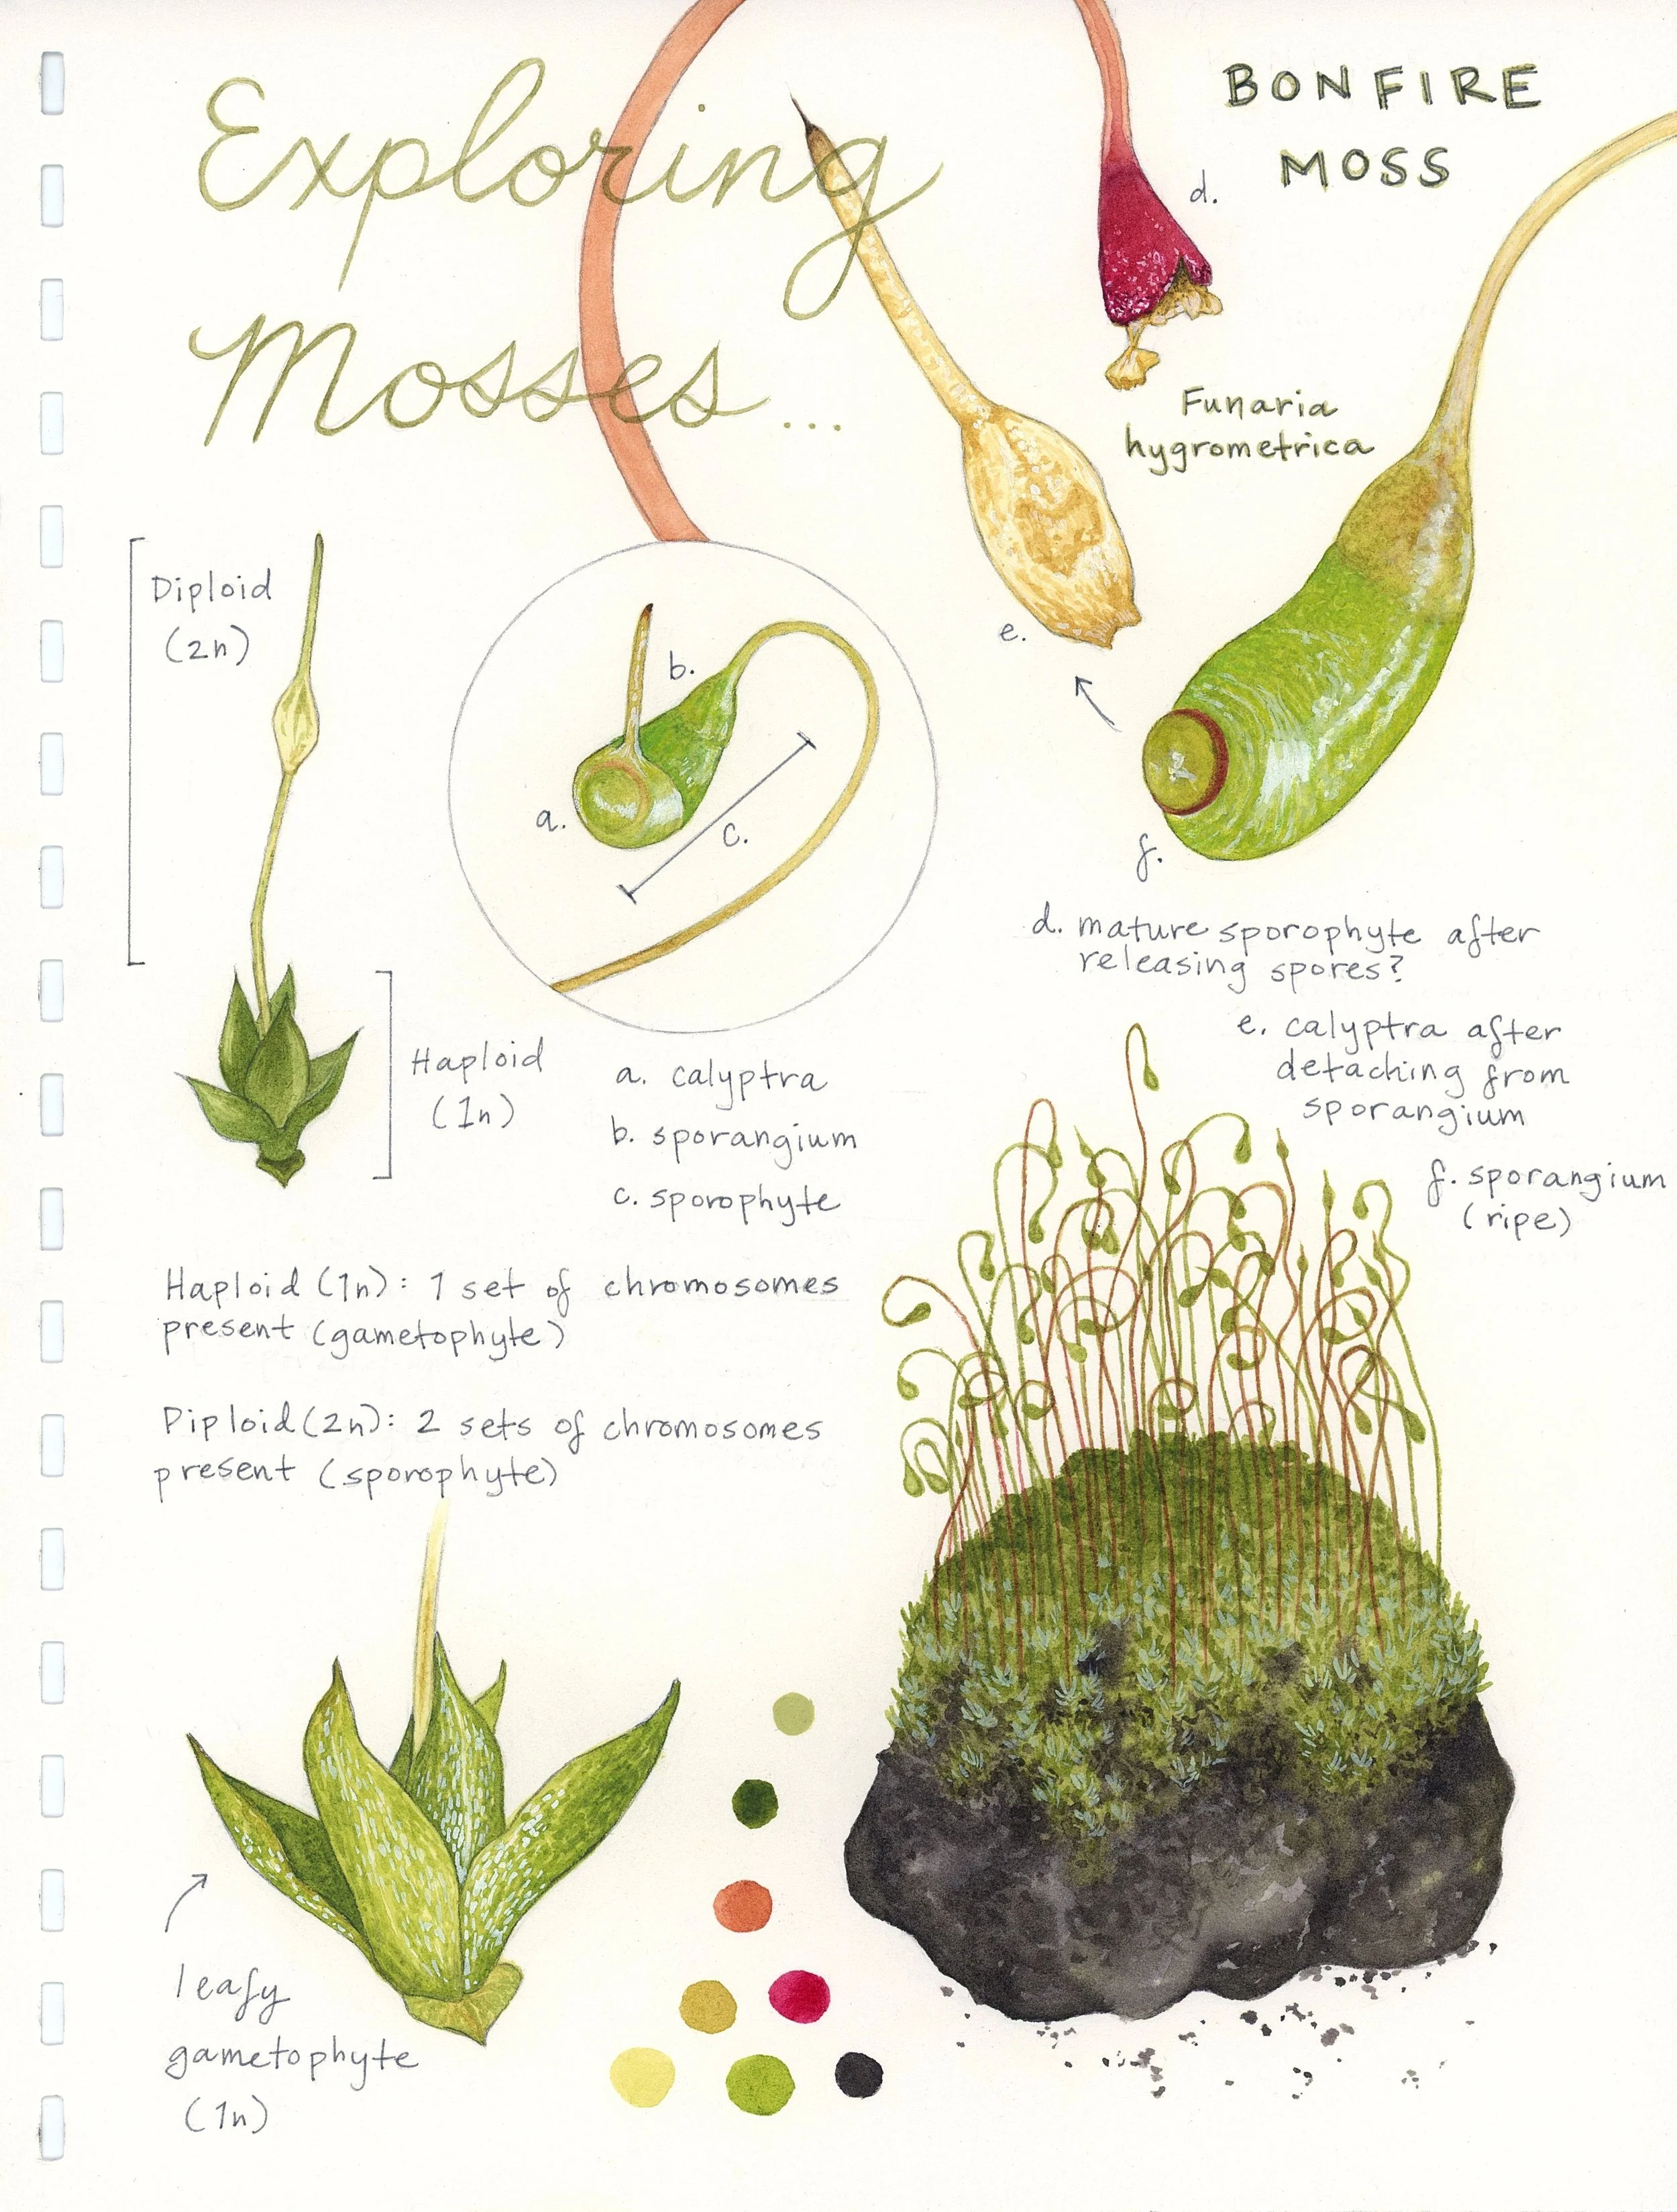 Exploring
Mosses...
BONFIRE
MOSS
d.
Funaria
hygrometrica
e.
f.
Diploid
(2n)
b.
a.
c.
Haploid
(1n)
a. calyptra
b. sporangium
c. sporophyte
d. mature sporophyte after
releasing spores?
e. calyptra after
detaching from
sporangium
f. sporangium
(ripe)
Haploid (1n): 1 set of chromosomes
present (gametophyte)
Diploid (2n): 2 sets of chromosomes
present (sporophyte)
leafy
gametophyte
(1n)